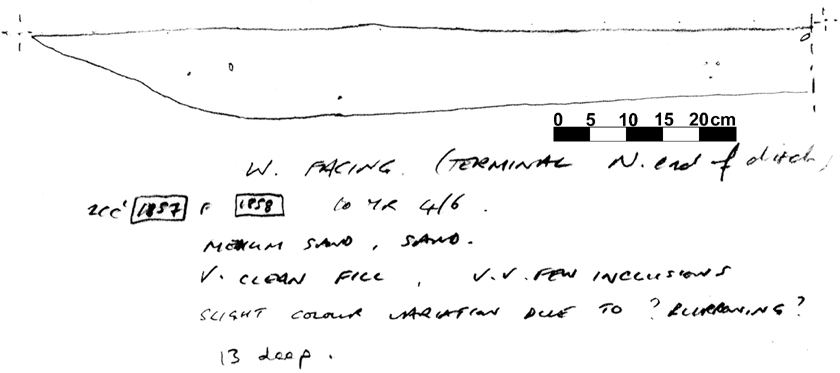 0 5 10 15 20cm
W. FACING. (TERMINAL N. end of ditch)
1857 F 1858 10 YR 4/6.
MEDIUM SAND, SAND.
V. CLEAN FILL, V.V. FEW INCLUSIONS
SLIGHT COLOUR VARIATION DUE TO ? BURROWING?
13 deep.